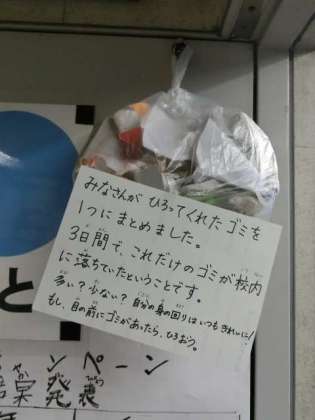 みなさんが ひろってくれた ゴミを
1つにまとめました。
3日間で、これだけのゴミが校内
に落ちていたということです。
多い？少ない？自分の身の回りはいつもきれいに！
もし、目の前にゴミがあったら、ひろおう。
と
ンペーン
果発表